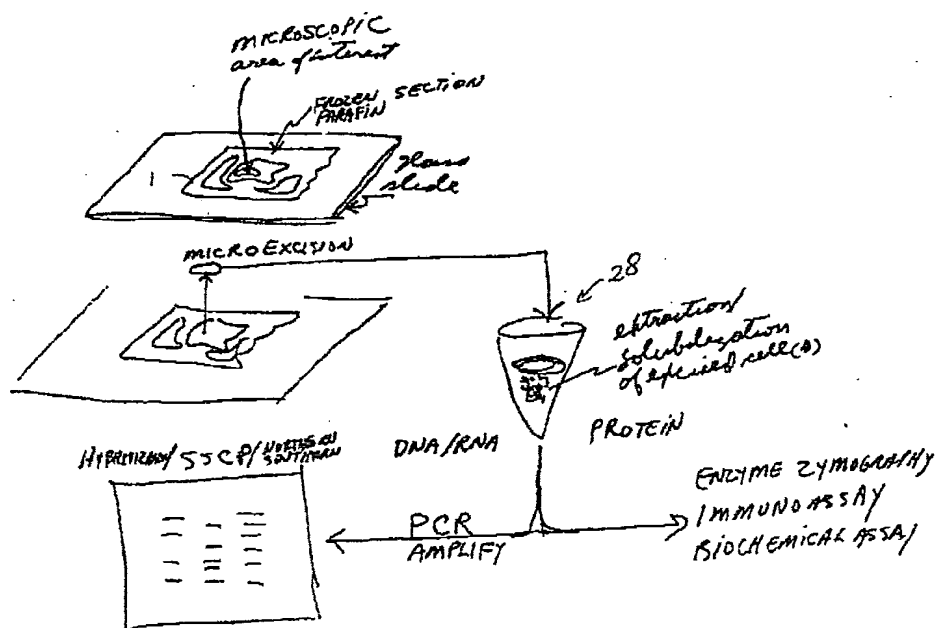 MICROSCOPIC
area of interest
FROZEN
PARAFIN SECTION
glass
slide
1
MICROEXCISION
28
extraction/
solubilization
of excised cell(s)
DNA/RNA
PROTEIN
HYBRIDIZATN/ SSCP/ NORTHERN
SOUTHERN
PCR
AMPLIFY
ENZYME ZYMOGRAPHY
IMMUNOASSAY
BIOCHEMICAL ASSAY